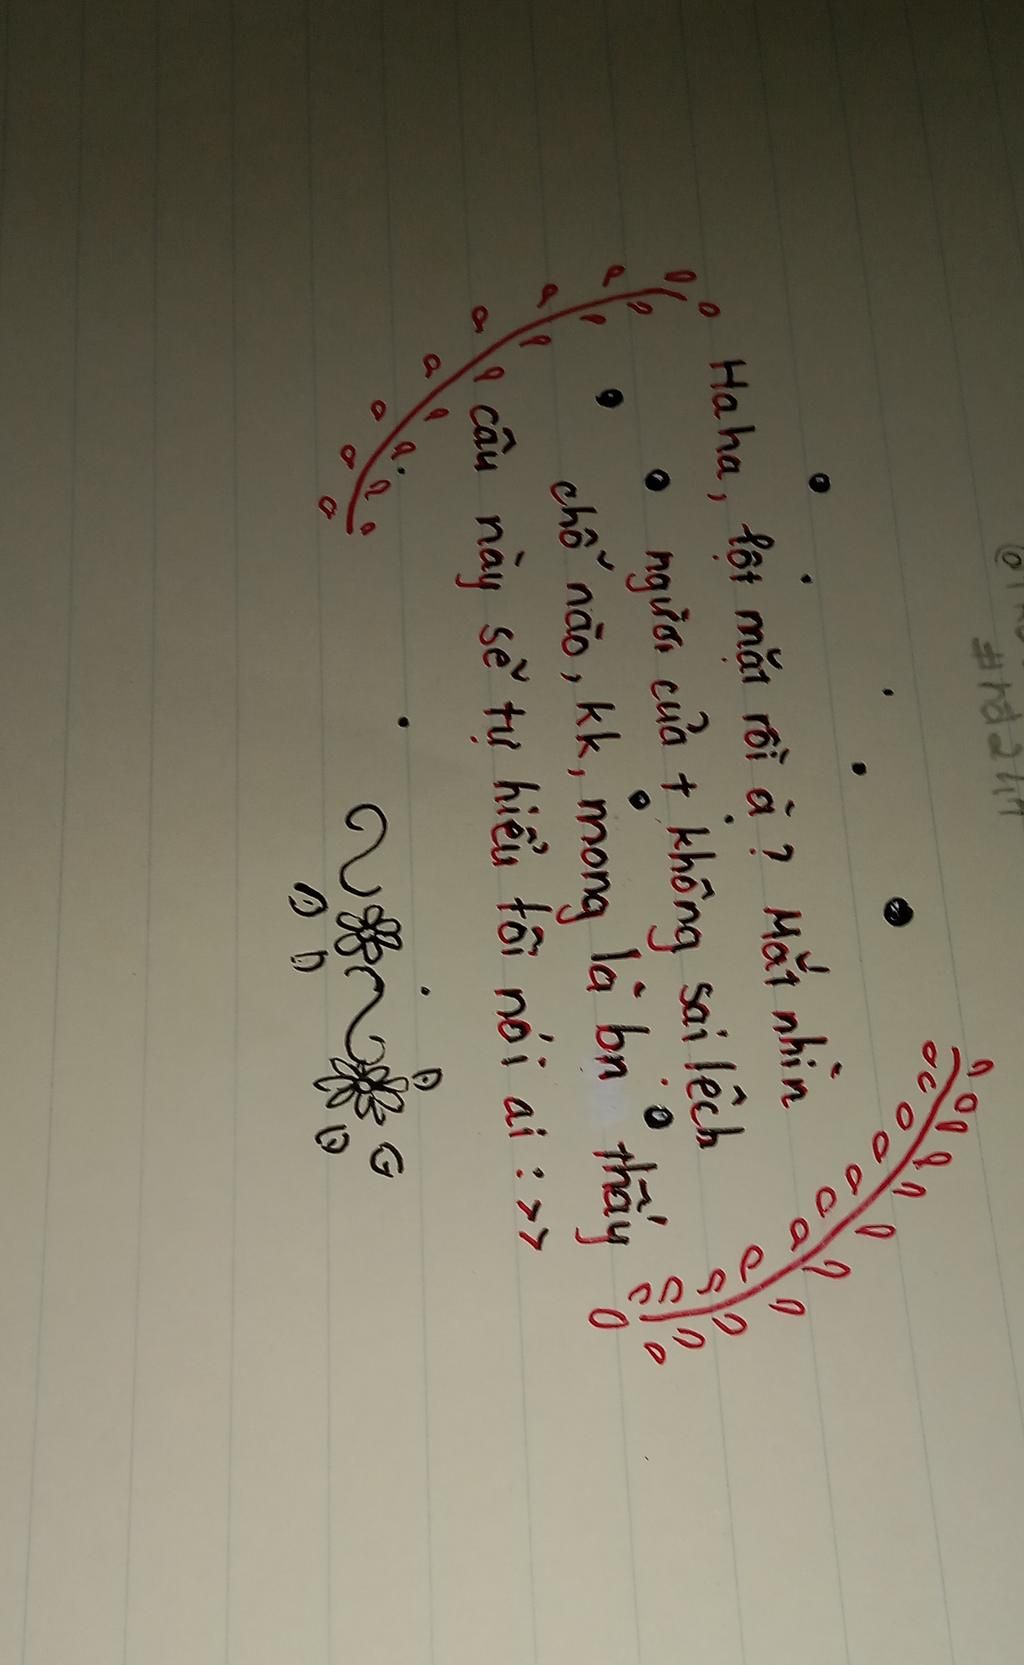 #hd2411
Haha, lột mặt rồi à? Mắt nhìn
người của t không sai lệch
chỗ nào, kk, mong là bn thấy
câu này sẽ tự hiểu tôi nói ai :>>